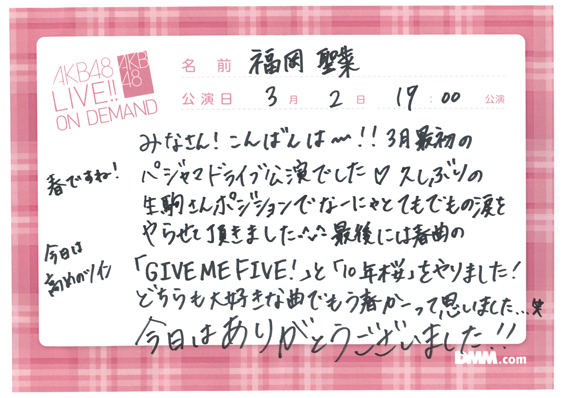 AKB48
LIVE!!
ON DEMAND
AKB
48
名 前 福岡 聖菜
公演日 3月 2日 17:00 公演
みなさん!こんばんは〜!!3月最初の
パジャマドライブ公演でした♡久しぶりの
生駒さんポジションでなーにゃとてもでもの涙を
やらせて頂きました^^ 最後には春曲の
「GIVE ME FIVE!」と「10年桜」をやりました!
どちらも大好きな曲でもう春かーって思いました...笑
今日はありがとうございました!!
春ですね!
今日は
高めのツイン
DMM.com